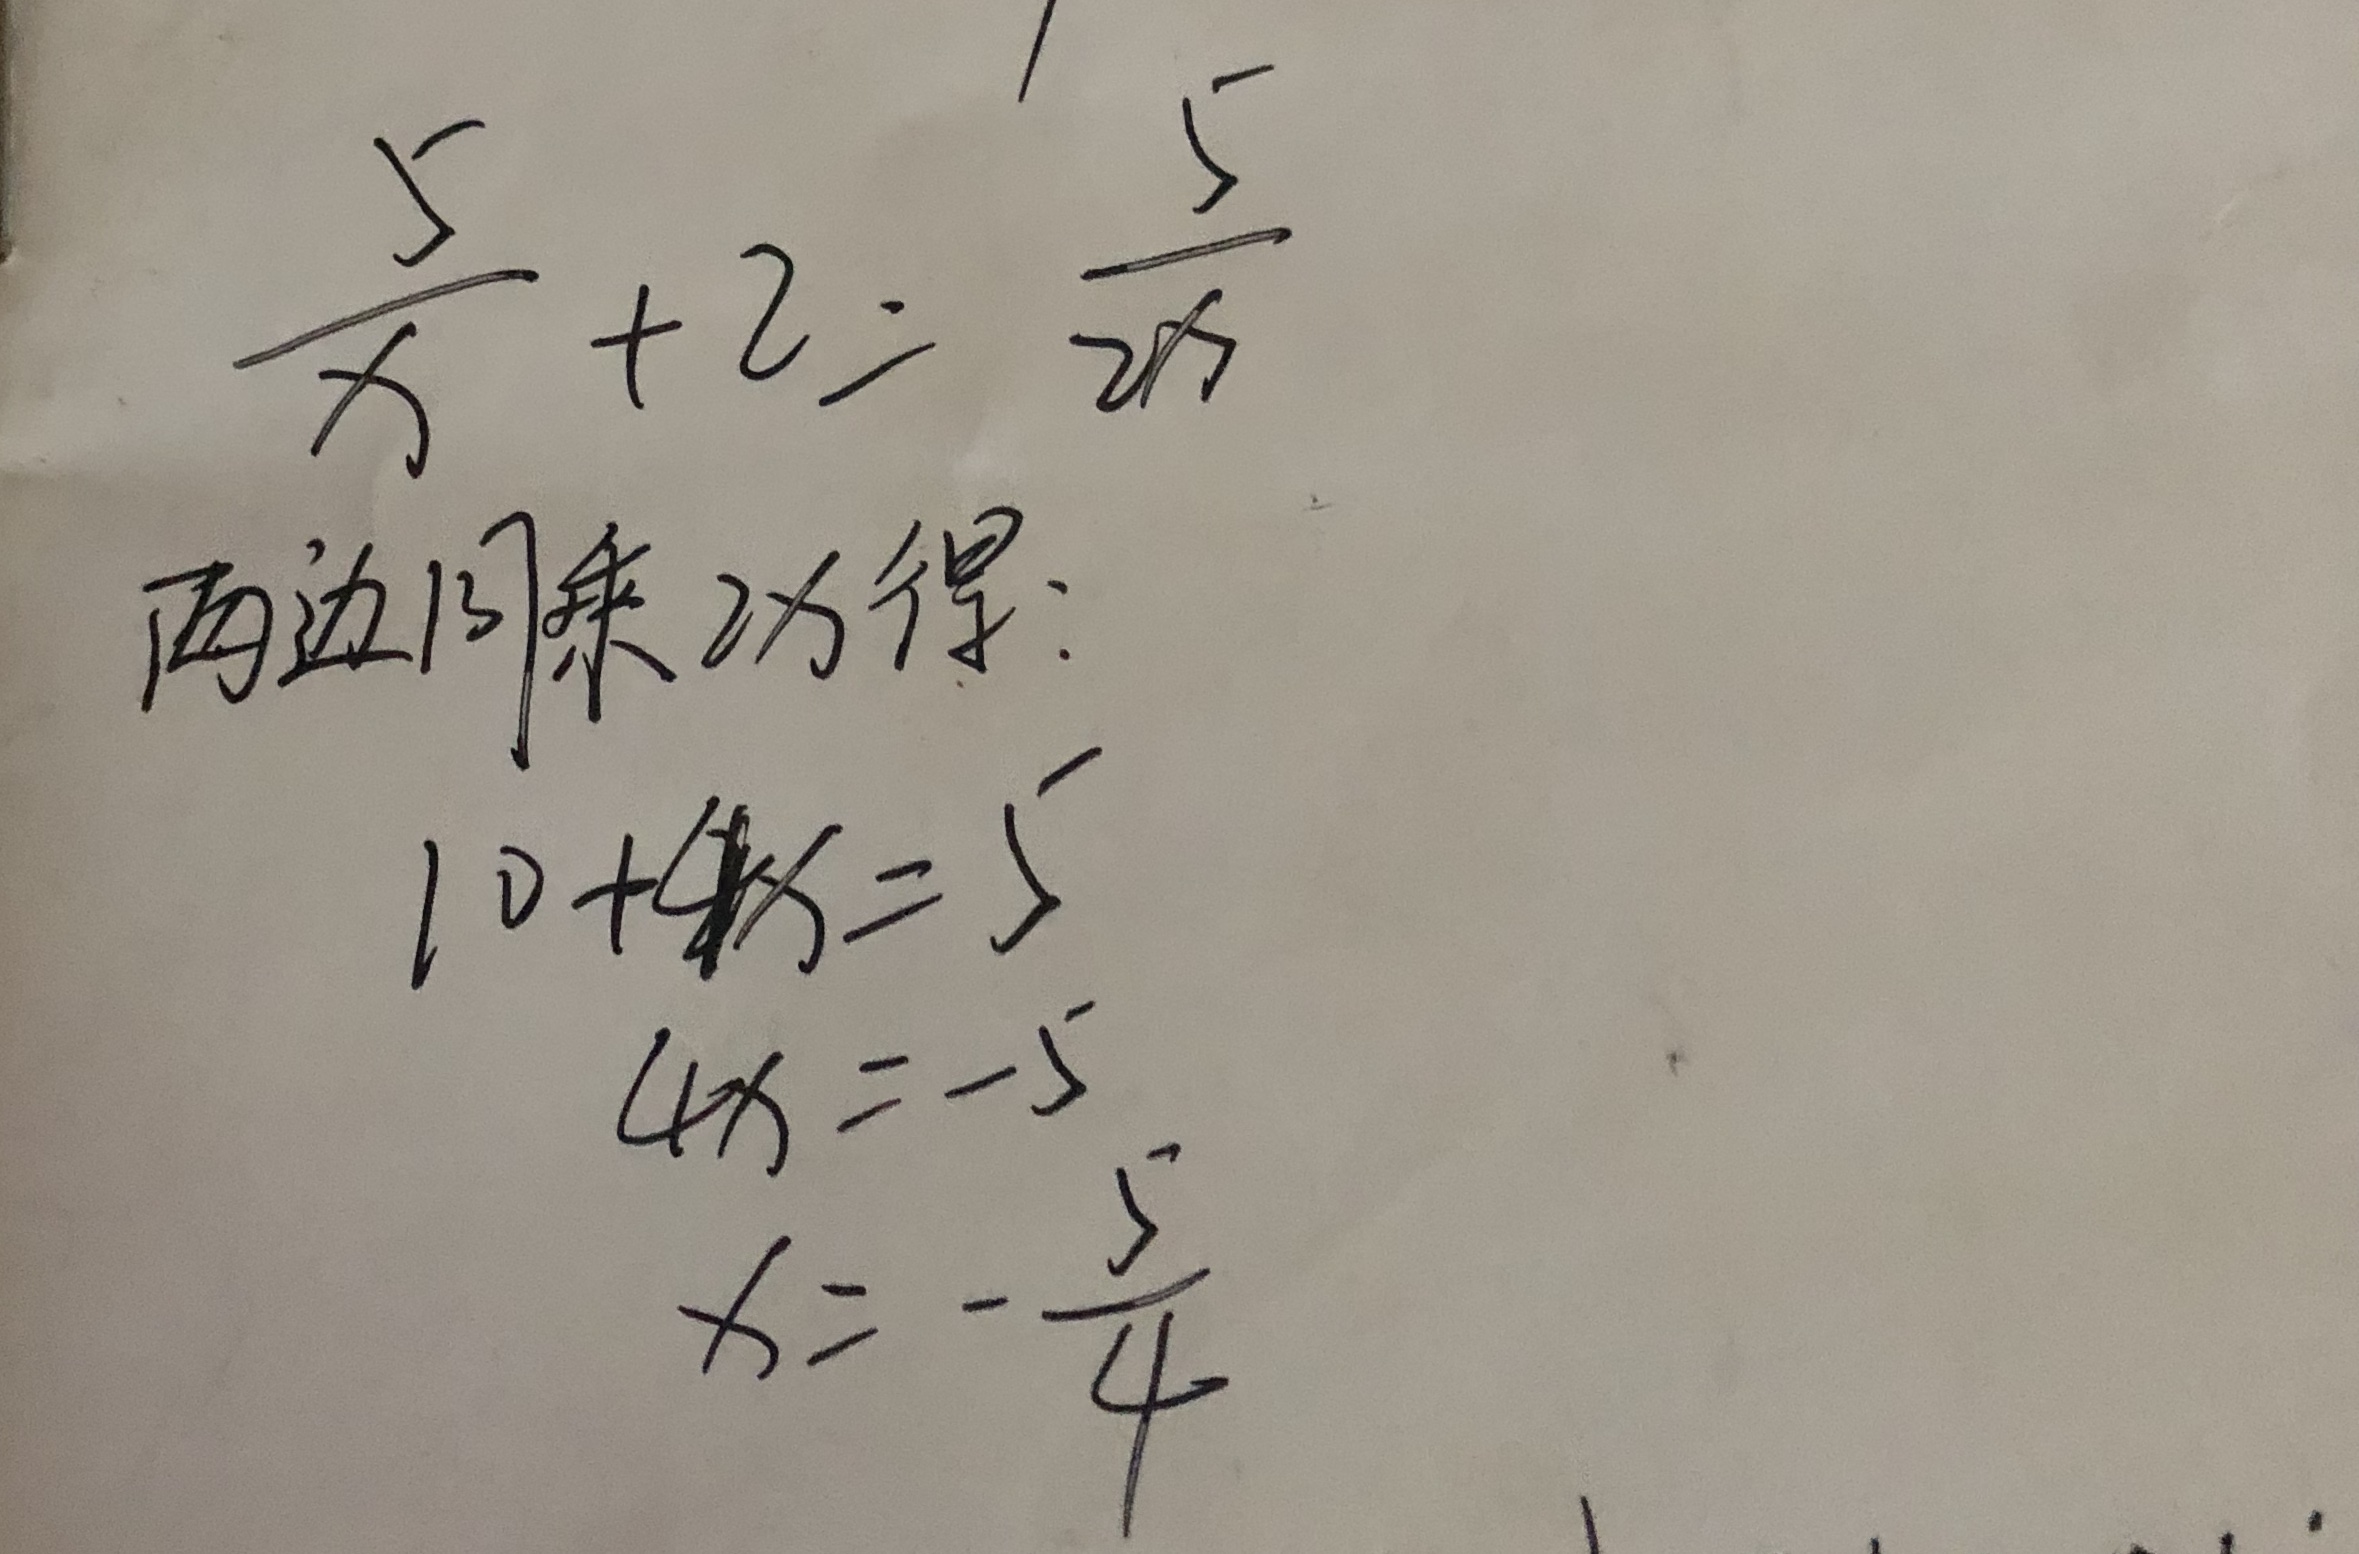 5/x + 2 = 5/2x
两边同乘2x得:
10+4x=5
4x=-5
x=-5/4